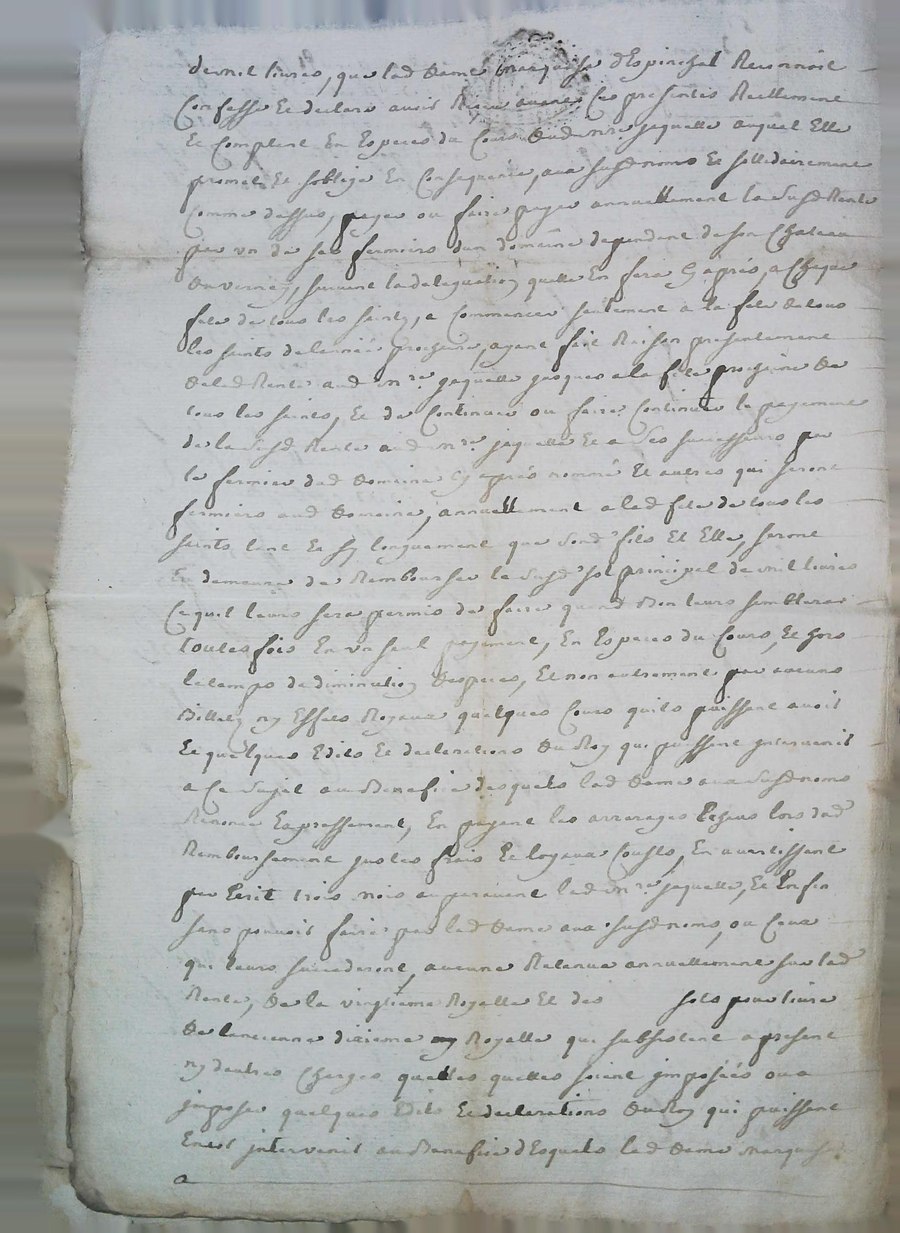 de mil livres, que lad Dame marquise d'Espinchal Reconnoit
Confesse Et declare avoir Receu avant Ces presentes Reellement
Et Comptent En Especes du Cours dud mre jaquelle auquel Elle
promet Et soblige En Consequence, aux susd noms Et sollidairement
Comme dessus, payer ou faire payer annuellement la susd Rente
par un de ses fermiers d'un domeine dependent de son Chateau
Du verney, suivant la delegation quelle En fera Cy après, a Chaque
fete de tous les saints, a Commencer seulement a la fete de tous
les saints de lannée prochene, ayant fait Raison presentement
de lad Rente aud mre jaquelle jusques a la fete prochene de
tous les saints, Et de Continuer ou faire Continuer le payement
de la susd Rente aud mre jaquelle Et a ses successeurs par
le fermier dud Domeine Cy après nommé Et autres qui seront
fermiers aud Domeine, annuellement a lad fete de tous les
saints tant Et sy longuement que sond fils Et Elle, seront
En demeure de Rembourser le susd sort principal de mil livres
Ce quil leurs sera permis de faire quand Bon leurs semblera
toutes fois En un seul payement, En Especes du Cours, Et hors
le temps de diminution despeces, Et non autrement par aucuns
Billets ny Effets Royaux quelques Cours quils puissent avoir
Et quelques Edits Et declarations du Roy qui puissent jntervenir
a Ce sujet au Benefice desquels lad Dame aux susd noms
Renonce Expressement, En payant les arrerages Echeus lors dud
Remboursement jus les frais Et loyaux Cousts, En avertissant
par Ecrit trois mois auparavant led mre jaquelle, Et Enfin
sans pouvoir faire par lad Dame aux susd noms, ou Ceux
qui leurs succederont, aucune Retenue annuellement sur lad
Rente, de la vingtieme Royalle Et des sols pour livre
de lancienne dixieme Royalle qui subsistent a present
ny dautres Charges quelles quelles soient jmposées ou a
jmposer quelques Edits Et declarations du Roy qui puissent
jntervenir au Benefice d'Esquels lad Dame marquise